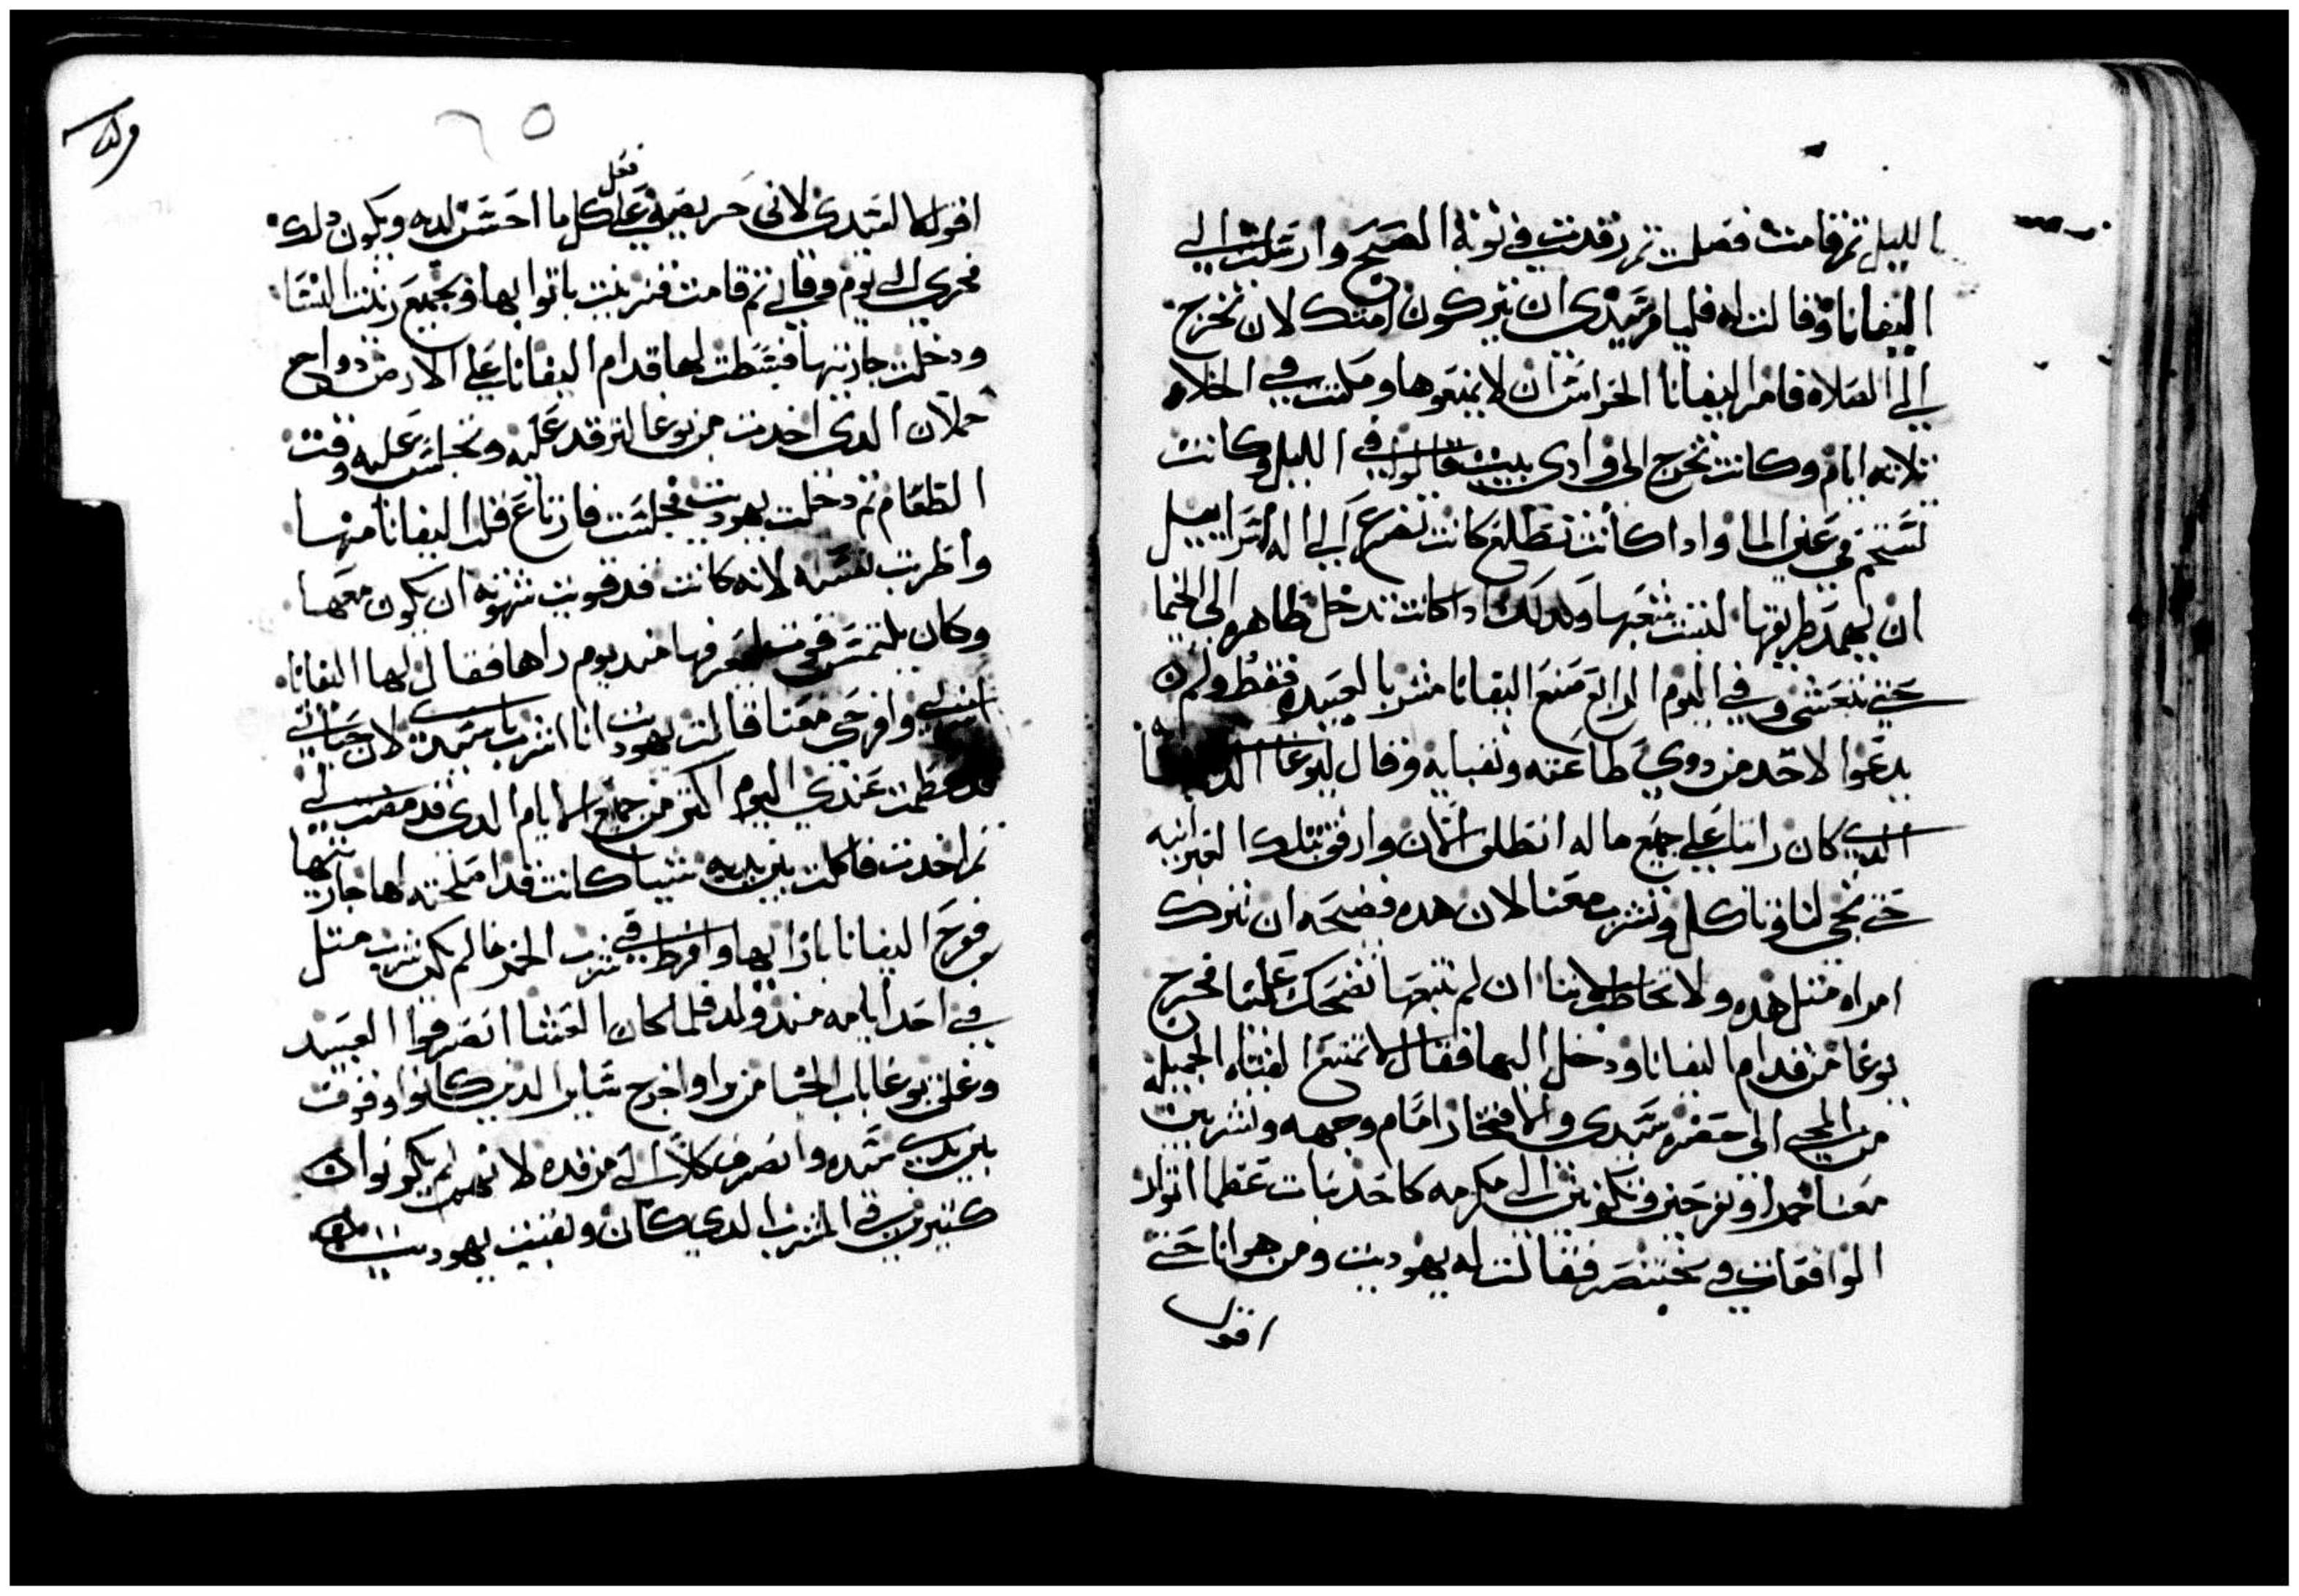 الليل ثم قامت فصلت ثم رقدت في نوبة الصبح وارسلت الي
اليفانا وقالت له فليامر سيدي ان يتركون امتك لان تخرج
الي الصلاه فامر اليفانا الحراس ان لا يمنعوها ومكثت في الخلاه
ثلاثه ايام وكانت تخرج الى وادي بيت فالوا في الليل وكانت
تستحم في عين الما واذا كانت تطلع كانت تضرع الي اله اسراييل
ان يمهد طريقها لتبت شعبها ولدلك ادا كانت تدخل طاهره الى الخيما
حتي تتعشى وفي اليوم الرابع صنع اليفانا مشربا لعبيده فقط ولم
يدعوا لاحد من دوي طاعته ونقبايه وقال ليوغا
الدي كان راتبا علي جميع ماله انطلق الان وارفق بتلك العبرانيه
حتي تجي لنا وتاكل وتشرب معنا لان هده فضيحه ان نترك
امراه مثل هده ولا نخاطبها لاننا ان لم نتبعها تضحك علينا فخرج
يوغا من قدام اليفانا ودخل اليها فقال لا تمتنع الفتاه الجميله
من المجي الى حضره سيدي والافتخار امام وجهه وتشربين
معنا خمرا وتفرحين وتكونين مكرمه كاحد بنات عظما اتوار
الواقفات في بختنصر فقالت له يهوديت ومن هو انا حتى
اقول
٦٥
اقول لا لسيدي لاني حريصة علي فعل كل ما احسن لديه ويكون دلك
فخري الى يوم وفاتي ثم قامت فتزينت باثوابها وبجميع زينت النسا
ودخلت جاريتها فبسطت لها قدام اليفانا علي الارض دواج
حملان الدي اخدت من يوغا لترقد عليه وتجلس عليه وقت
الطعام ثم دخلت يهوديت فجلست فارتاع قلب اليفانا منها
واطربت نفسه لانه كانت قد قويت شهوته ان يكون معها
وكان يلتمس مند يوم راها فقال لها اليفانا
اشربي وافرحي معنا قالت يهوديت انا اشرب يا سيدي لان حياتي
قد عظمت عندي اليوم اكثر من جميع الايام الدي قد مضت لي
ثم اخدت فاكلت بين يديه شيا كانت قد اصلحته لها جاريتها
وفرح اليفانا بازايها وافرط في شرب الخمر ما لم يكن شرب مثل
في احد ايامه مند ولد فلما كان العشا انصرفوا العبيد
وغلق يوغا باب الخبا من برا واخرج ساير الدين كانوا وقوف
بين يدي سيده وانصرف كلا الى مرقده لانهم لم يكونوا
كثيرين في المشرب الدي كان وبقيت يهوديت